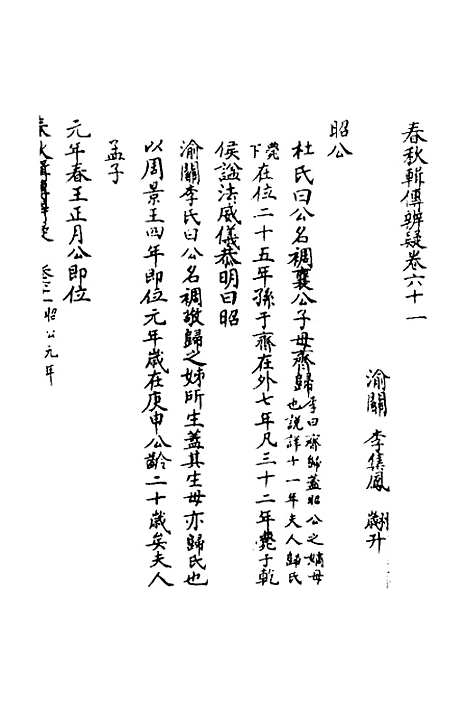 春秋輯傳辨疑卷六十一
渝關 李集鳳 翽升
昭公
杜氏曰公名裯襄公子母齊歸李曰齊歸蓋昭公之嫡母也說詳十一年夫人歸氏
薨下在位二十五年孫于齊在外七年凡三十二年薨于乾
侯諡法威儀恭明曰昭
渝關李氏曰公名裯敬歸之娣所生蓋其生母亦歸氏也
以周景王四年即位元年歲在庚申公齡二十歲矣夫人
孟子
元年春王正月公即位
春秋輯傳辨疑 卷六十一 昭公元年